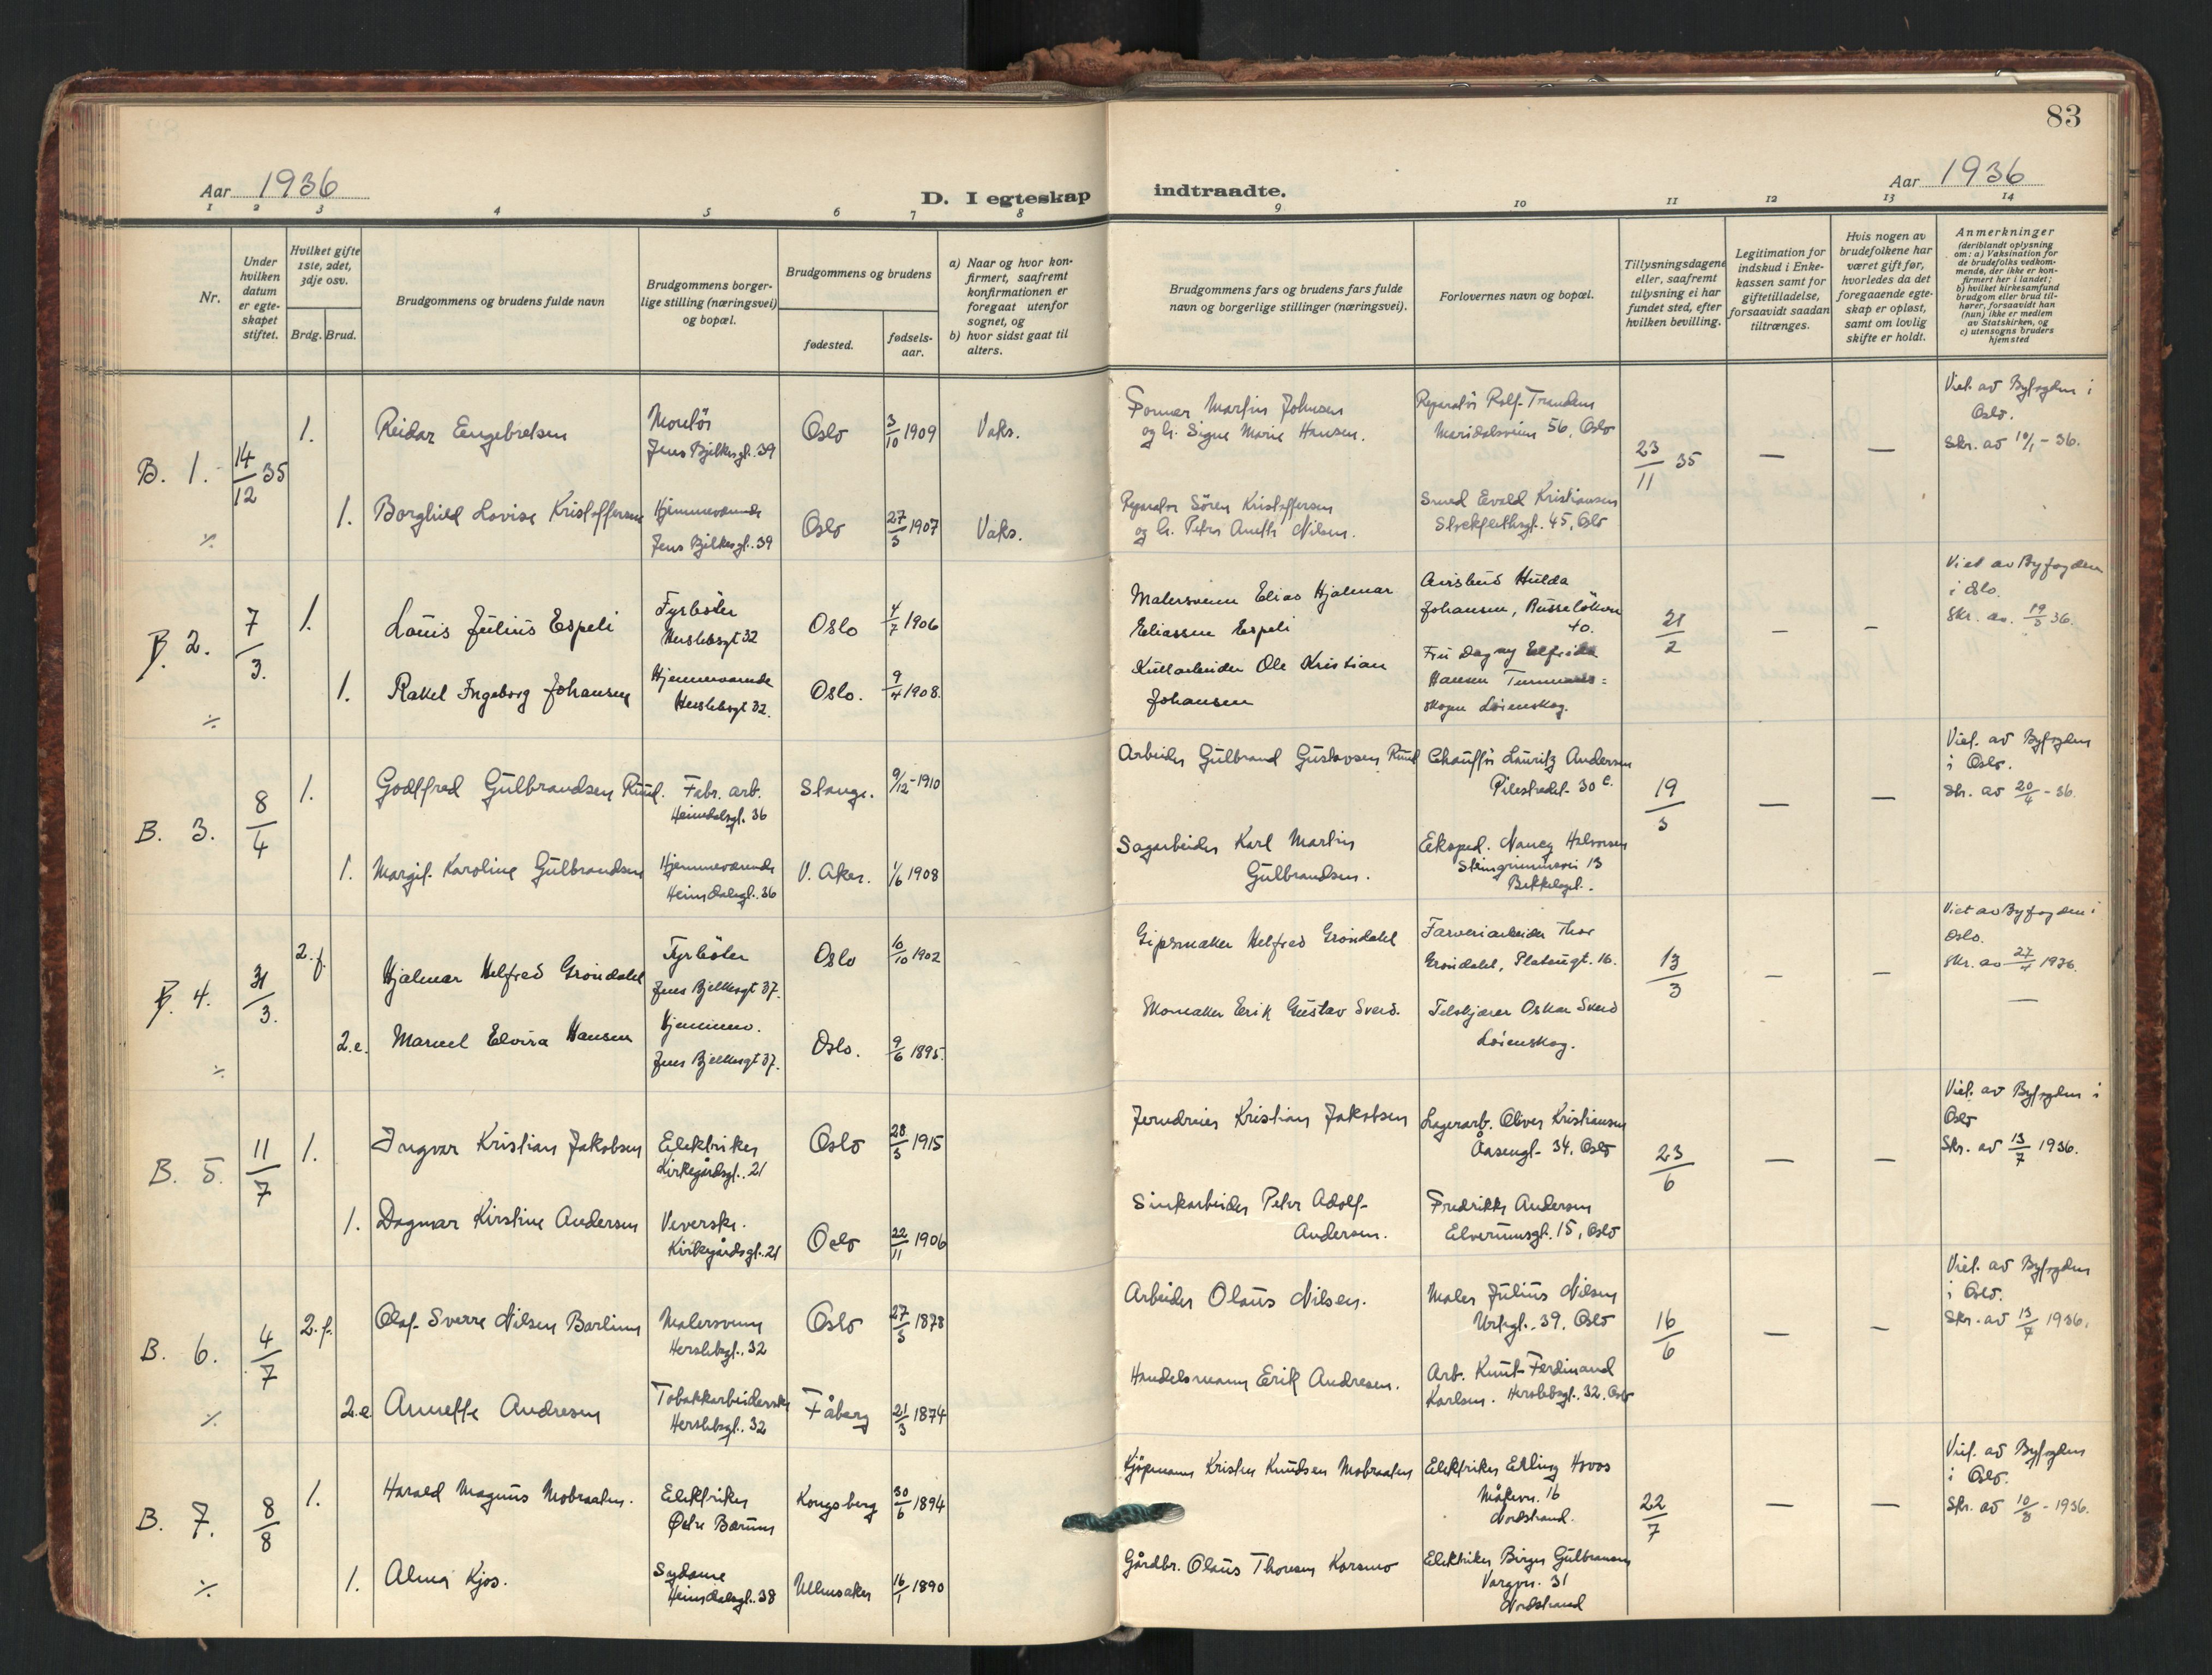 83
Aar 1936
D. I egteskap indtraadte.
Aar 1936
1 2 3 4 5 6 7 8 9 10 11 12 13 14
Nr.
Under
hvilken
datum
er egte-
skapet
stiftet.
Hvilket gifte
1ste, 2det,
3dje osv.
Brdg. Brud.
Brudgommens og brudens fulde navn
Brudgommens borger-
lige stilling (næringsvei)
og bopæl.
Brudgommens og brudens
fødested.
fødsels-
aar.
a) Naar og hvor kon-
firmert, saafremt
konfirmationen er
foregaat utenfor
sognet, og
b) hvor sidst gaat til
alters.
Brudgommens fars og brudens fars fulde
navn og borgerlige stillinger (næringsvei).
Forlovernes navn og bopæl.
Tillysningsdagene
eller, saafremt
tillysning ei har
fundet sted, efter
hvilken bevilling.
Legitimation for
indskud i Enke-
kassen samt for
giftetilladelse,
forsaavidt saadan
tiltrænges.
Hvis nogen av
brudefolkene har
været gift før,
hvorledes da det
foregaaende egte-
skap er opløst,
samt om lovlig
skifte er holdt.
Anmerkninger
(deriblandt oplysning
om: a) Vaksination for
de brudefolks vedkom-
mende, der ikke er kon-
firmert her i landet;
b) hvilket kirkesamfund
brudgom eller brud til-
hører, forsaavidt han
(hun) ikke er medlem
av Statskirken, og
c) utensogns bruders
hjemsted
B. 1.
14/12 35
1.
Reidar Engebretsen
Montör
Jens Bjelkesgt. 39
Oslo
3/10 1909
Vaks.
Former Martin Johnsen
og h. Signe Marie Hansen.
Reparatör Rolf Trandem
Maridalsveien 56, Oslo
23/11 35
—
—
Viet av Byfogden i
Oslo.
Skr. av 10/1 - 36.
1.
Borghild Lovise Kristoffersen
Hjemmeværende
Jens Bjelkesgt. 39
Oslo
27/3 1907
Vaks.
Reparatör Sören Kristoffersen
og h. Petra Anette Nilsen.
Smed Evald Kristiansen
45, Oslo
B. 2.
7/3.
1.
Louis Julius Espeli
Fyrböter
Herslebsgt 32
Oslo
4/7 1906
Malersvenn Elias Hjalmar
Eliassen Espeli
Hulda
Johansen,
40.
21/2
—
—
Viet av Byfogden
i Oslo.
Skr. av. 19/3 36.
1.
Rakel Ingeborg Johansen
Hjemmeværende
Herslebsgt 32.
Oslo.
9/4 1908.
Kullarbeider Ole Kristian
Johansen
Fru Dagny Elfrida
Hansen
skogen Löienskog.
B. 3.
8/4
1.
Godtfred Gulbrandsen Ruud.
Fabr. arb.
Heimdalsgt. 36
Stange.
9/12 - 1910
Arbeider Gulbrand Gustavsen Ruud
Chaufför Lauritz Andersen
Pilestredet 30 c.
19/3
—
—
Viet. av Byfogden
i Oslo.
Skr. av 20/4 - 36.
1.
Margit Karoline Gulbrandsen
Hjemmeværende
Heimdalsgt. 36
V. Aker.
1/6 1908
Sagarbeider Karl Martin
Gulbrandsen.
Eksped. Nancy Halvorsen
13
Bekkelaget.
B. 4.
31/3.
2. f.
Hjalmar Helfred Gröndahl
Fyrböter
Jens Bjelkesgt 37.
Oslo
10/10 1902
Gipsmaker Helfred Gröndahl
Farveriarbeider Thor
Gröndahl, Platougt. 16.
13/3
—
—
Viet av Byfogden i
Oslo.
Skr. av 27/4 1936.
—
2. e.
Elvira Hansen
Hjemmev.
Jens Bjelkesgt 37.
Oslo.
9/6 1895.
Skomaker Erik Gustav Sverd.
Oskar Sverd
Löienskog.
B. 5.
11/7
1.
Ingvar Kristian Jakobsen
Elektriker
Kirkegårdsgt. 21
Oslo
28/3 1915
Jerndreier Kristian Jakobsen
Lagerarb. Oliver Kristiansen
Åsengt. 34, Oslo
23/6
—
—
Viet. av Byfogden i
Oslo
Skr. av 13/7 1936.
1.
Dagmar Kirstine Andersen
Veverske.
Kirkegårdsgt. 21
Oslo
22/11 1906
Sinkarbeider Peter Adolf
Andersen.
Fredrikke Andersen
Elverumsgt. 15, Oslo
B. 6.
4/7
2. f.
Olaf Sverre Nilsen Barlinn
Malersvenn
Herslebsgt. 32
Oslo
27/3 1878
Arbeider Olaus Nilsen.
Maler Julius Nilsen
Urtegt. 39, Oslo
16/6
—
—
Viet. av Byfogden
i Oslo.
Skr. av 13/7 1936.
2. e
Annette Andresen
Tobakkarbeiderske
Herslebsgt. 32
Fåberg
21/3 1874
Handelsmann Erik Andresen.
Arb. Knut Ferdinand
Karlsen. Herslebsgt. 32. Oslo
B. 7.
8/8
1.
Harald Magnus Mobraaten.
Elektriker
Østre Bærum
Kongsberg
30/6 1894
Kjöpmann Kristen Knudsen Mobraaten
Elektriker Erling Hovos
16
Nordstrand.
22/7
—
—
Viet. av Byfogden
i Oslo.
Skr. av 10/8 - 1936.
1.
Alma Kjos.
Sydame
Heimdalsgt. 38
Ullensaker
16/1 1890
Gårdbr. Olaus Thoresen Karsmo
Elektriker Birger Gulbransen
Vargvn. 31
Nordstrand